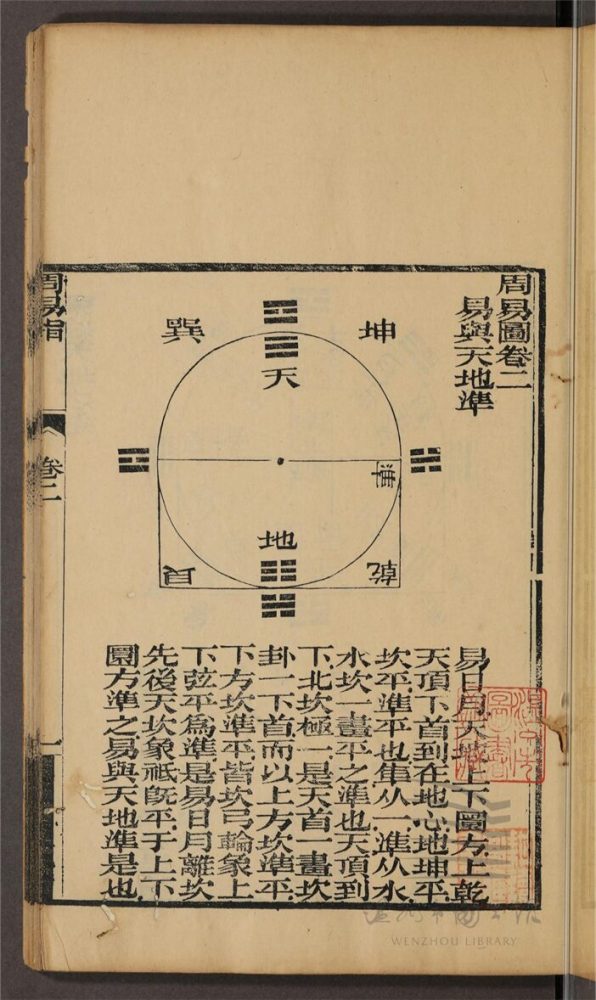 周易圖卷二
易與天地準
坤
巽
天
準
地
乾
艮
易日月天地上下圜方上乾
天頂下首到在地心地坤平
坎平準平也隼从一準从水
水坎一畫平之準也天頂到
下北坎極一是天首一畫坎
卦一下首而以上方坎準平
下方坎準平皆坎弓輪象上
下弦平為準是易日月離坎
先後天坎象祗旣平于上下
圜方準之易與天地準是也
周易指
卷二
一
WENZHOU LIBRARY